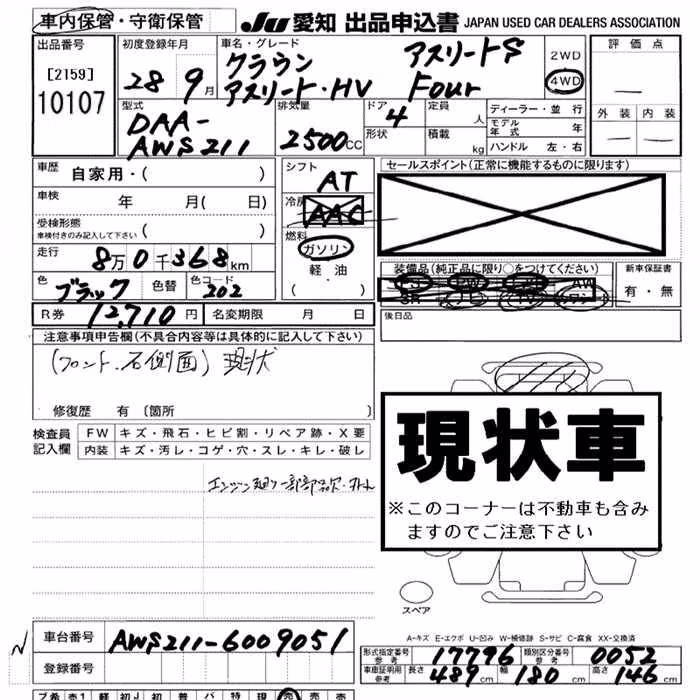 車内保管・守衛保管
JU 愛知 出品申込書 JAPAN USED CAR DEALERS ASSOCIATION
出品番号 [2159] 10107
初度登録年月 28 9月
車名・グレード クラウン アスリートS
アスリート・HV Four
2WD
4WD
評価点 —
外装 — 内装 —
型式 DAA-AWS211
排気量 2500cc
ドア 4 形状
定員 人
積載 kg
ディーラー・並行
モデル年式 年
ハンドル 左・右
車歴 自家用・( )
車検 年 月( 日)
受検形態 車検付きのみ記入して下さい ( )
走行 8万0千368km
色 ブラック 色替 色コード 202
シフト AT
冷房 AAC
燃料 ガソリン
軽油
・( )
セールスポイント(正常に機能するものに限ります)
装備品(純正品に限り○をつけてください)
新車保証書 有・無
R券 12,710円 名変期限 月 日
後日品
注意事項申告欄(不具合内容等は具体的に記入して下さい)
(フロント、右側面)現状
修復歴 有〔箇所 〕
検査員記入欄
FW キズ・飛石・ヒビ割・リペア跡・X要
内装 キズ・汚レ・コゲ・穴・スレ・キレ・破レ
現状車
※このコーナーは不動車も含み
ますのでご注意下さい
スペア
A-キズ E-エクボ U-凹み W-補修跡 S-サビ C-腐食 XX-交換済
車台番号 AWS211-6009051
登録番号
型式指定番号 参考 17796 類別区分番号 参考 0052
車庫証明用 参考 長さ 489 幅 180 高さ 146cm